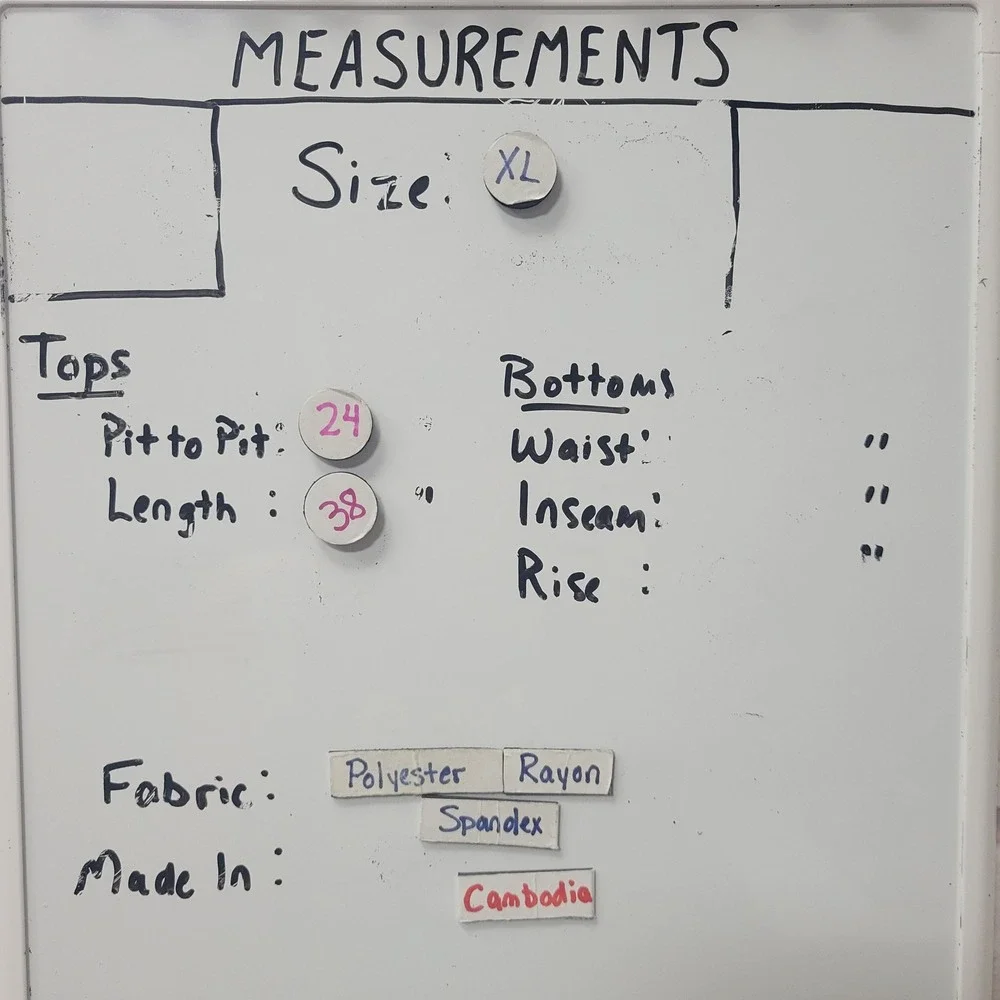 MEASUREMENTS
Size: XL
Tops
Pit to Pit: 24 "
Length : 38 "
Bottoms
Waist: "
Inseam: "
Rise : "
Fabric: Polyester Rayon
Spandex
Made In : Cambodia